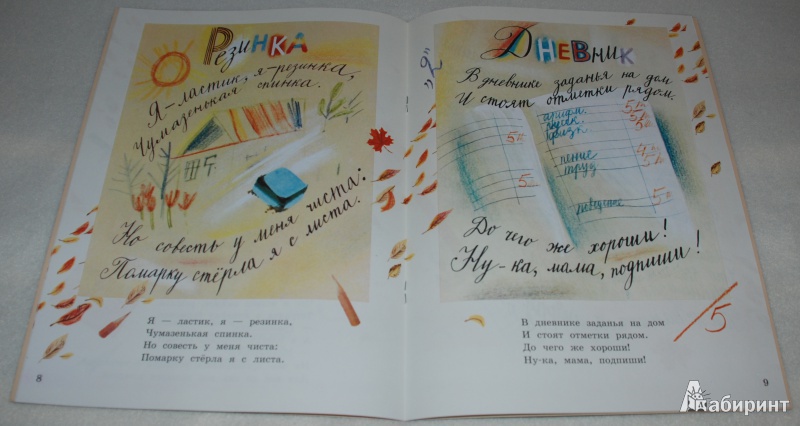 Резинка
Я-ластик, я-розинка,
Чумазенькая спинка.
Но совесть у меня чиста:
Помарку стёрла я с листа.
Я — ластик, я — резинка,
Чумазенькая спинка.
Но совесть у меня чиста:
Помарку стёрла я с листа.
8
„2”
Дневник
В дневнике заданья на дом
И стоят отметки рядом.
5
5
пение
труд
поведение
5
До чего же хороши!
Ну-ка, мама, подпиши!
/5
В дневнике заданья на дом
И стоят отметки рядом.
До чего же хороши!
Ну-ка, мама, подпиши!
9
Лабиринт